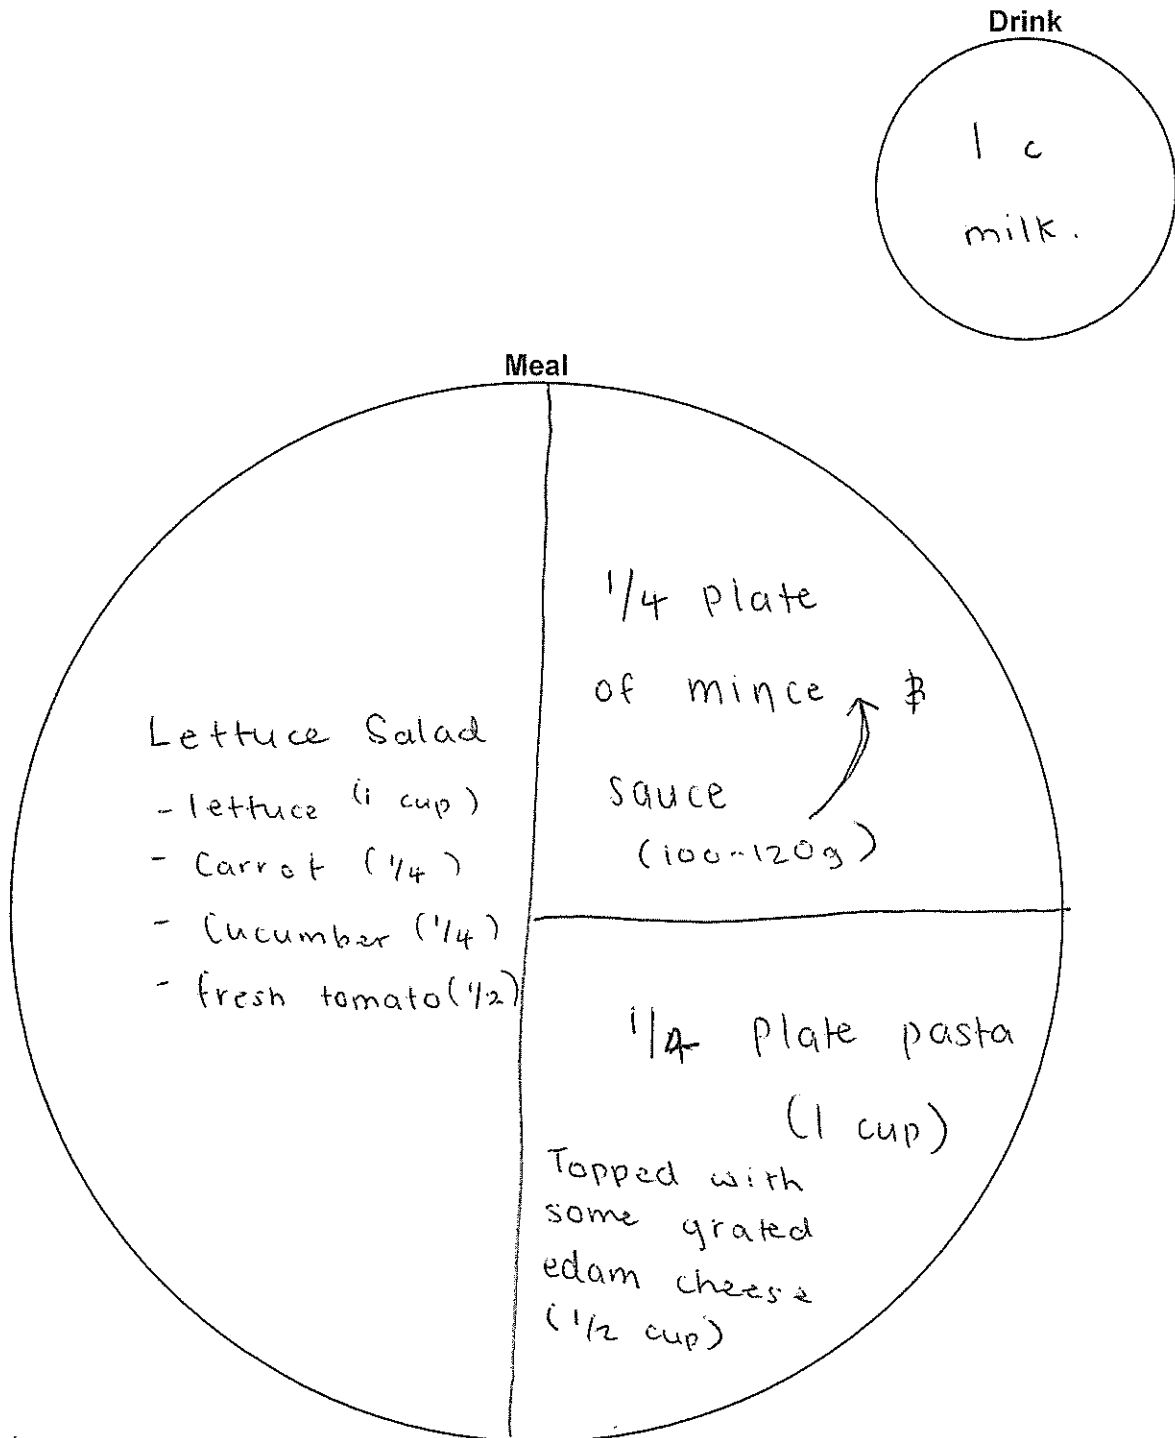 Drink
1 c
milk.
Meal
Lettuce Salad
- lettuce (1 cup)
- Carrot (1/4)
- Cucumber (1/4)
- fresh tomato (1/2)
1/4 Plate
of mince
sauce
(100-120g)
1/4 Plate pasta
(1 cup)
Topped with
some grated
edam cheese
(1/2 cup)